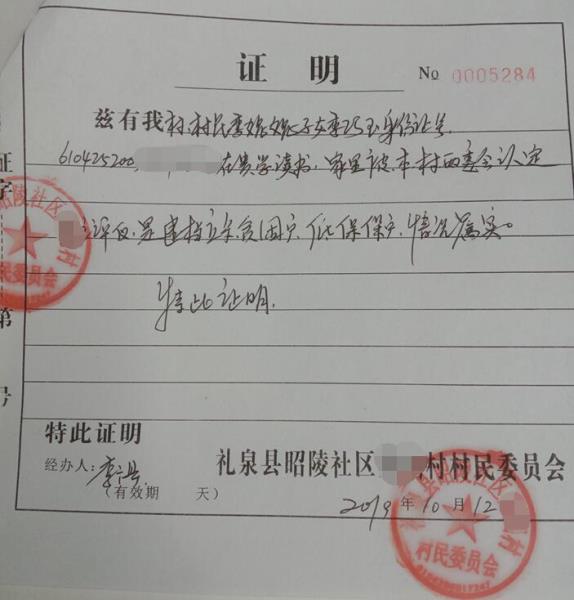 证明 No 0005284
兹有我村村民李 之子女李 玉身份证号
610425200 在贵学读书,家里被本村两委会认定
评议,是建档立卡贫困户,低保保户,情况属实。
特此证明.
特此证明
经办人:李
(有效期 天)
礼泉县昭陵社区 村村民委员会
2019年10月12
昭陵社区 村
村民委员会
证 字 第 号
礼泉县昭陵社区 村
村民委员会